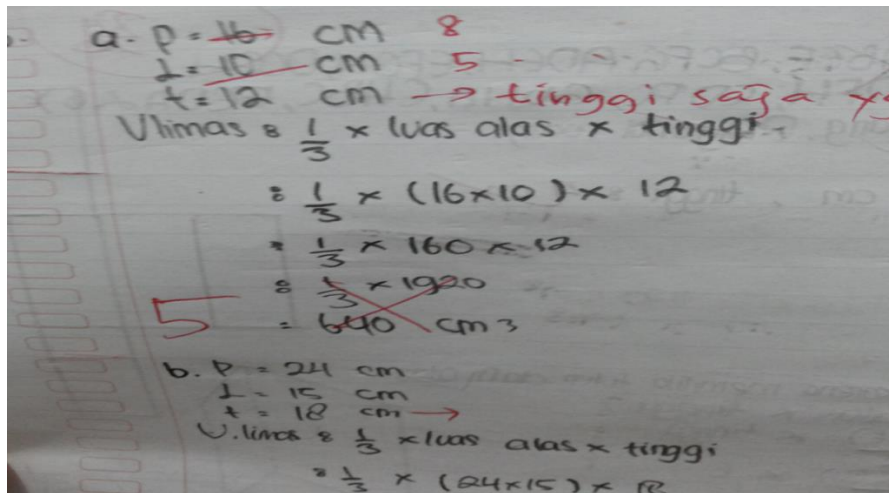 a. P = 16 cm 8
L = 10 cm 5
t = 12 cm → tinggi saja
V limas : 1/3 × luas alas × tinggi
: 1/3 × (16×10) × 12
: 1/3 × 160 × 12
: 1/3 × 1920
5 = 640 cm3
b. P = 24 cm
L = 15 cm
t = 18 cm →
V. limas : 1/3 × luas alas × tinggi
: 1/3 × (24×15) ×